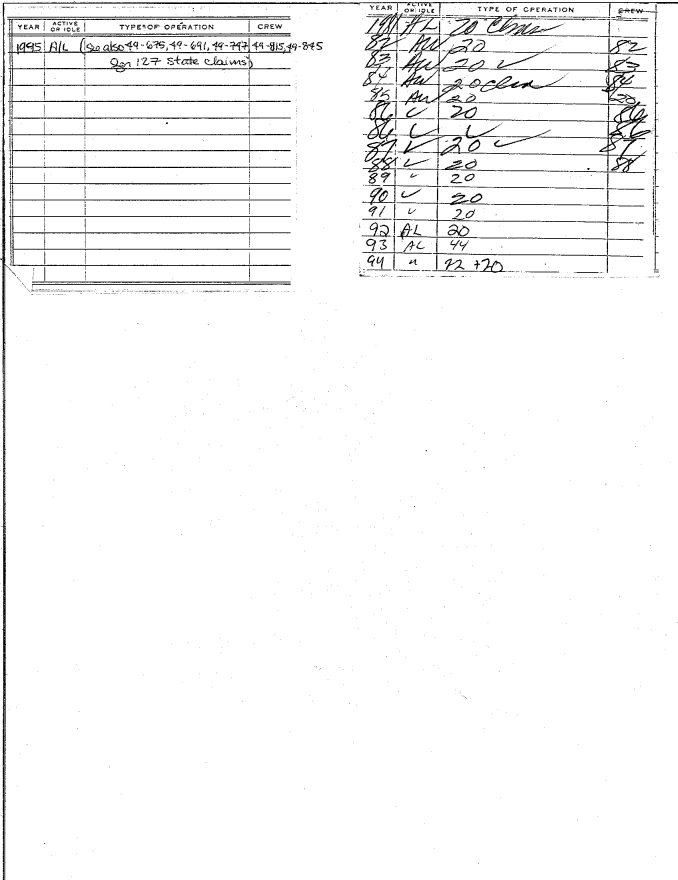 YEAR ACTIVE OR IDLE TYPE OF OPERATION CREW
1995 A/L (See also 49-675, 49-691, 49-747, 49-815, 49-845
for 127 State claims)
YEAR ACTIVE OR IDLE TYPE OF OPERATION CREW
1981 AL 20 Clms
82 AW 20 82
83 AW 20 ✓ 83
84 AW 20 clm 84
85 AW 20
86 20 86
86 86
87 20 ✓ 87
88 20 88
89 " 20
90 20
91 " 20
92 AL 20
93 AL 44
94 " 22 +20